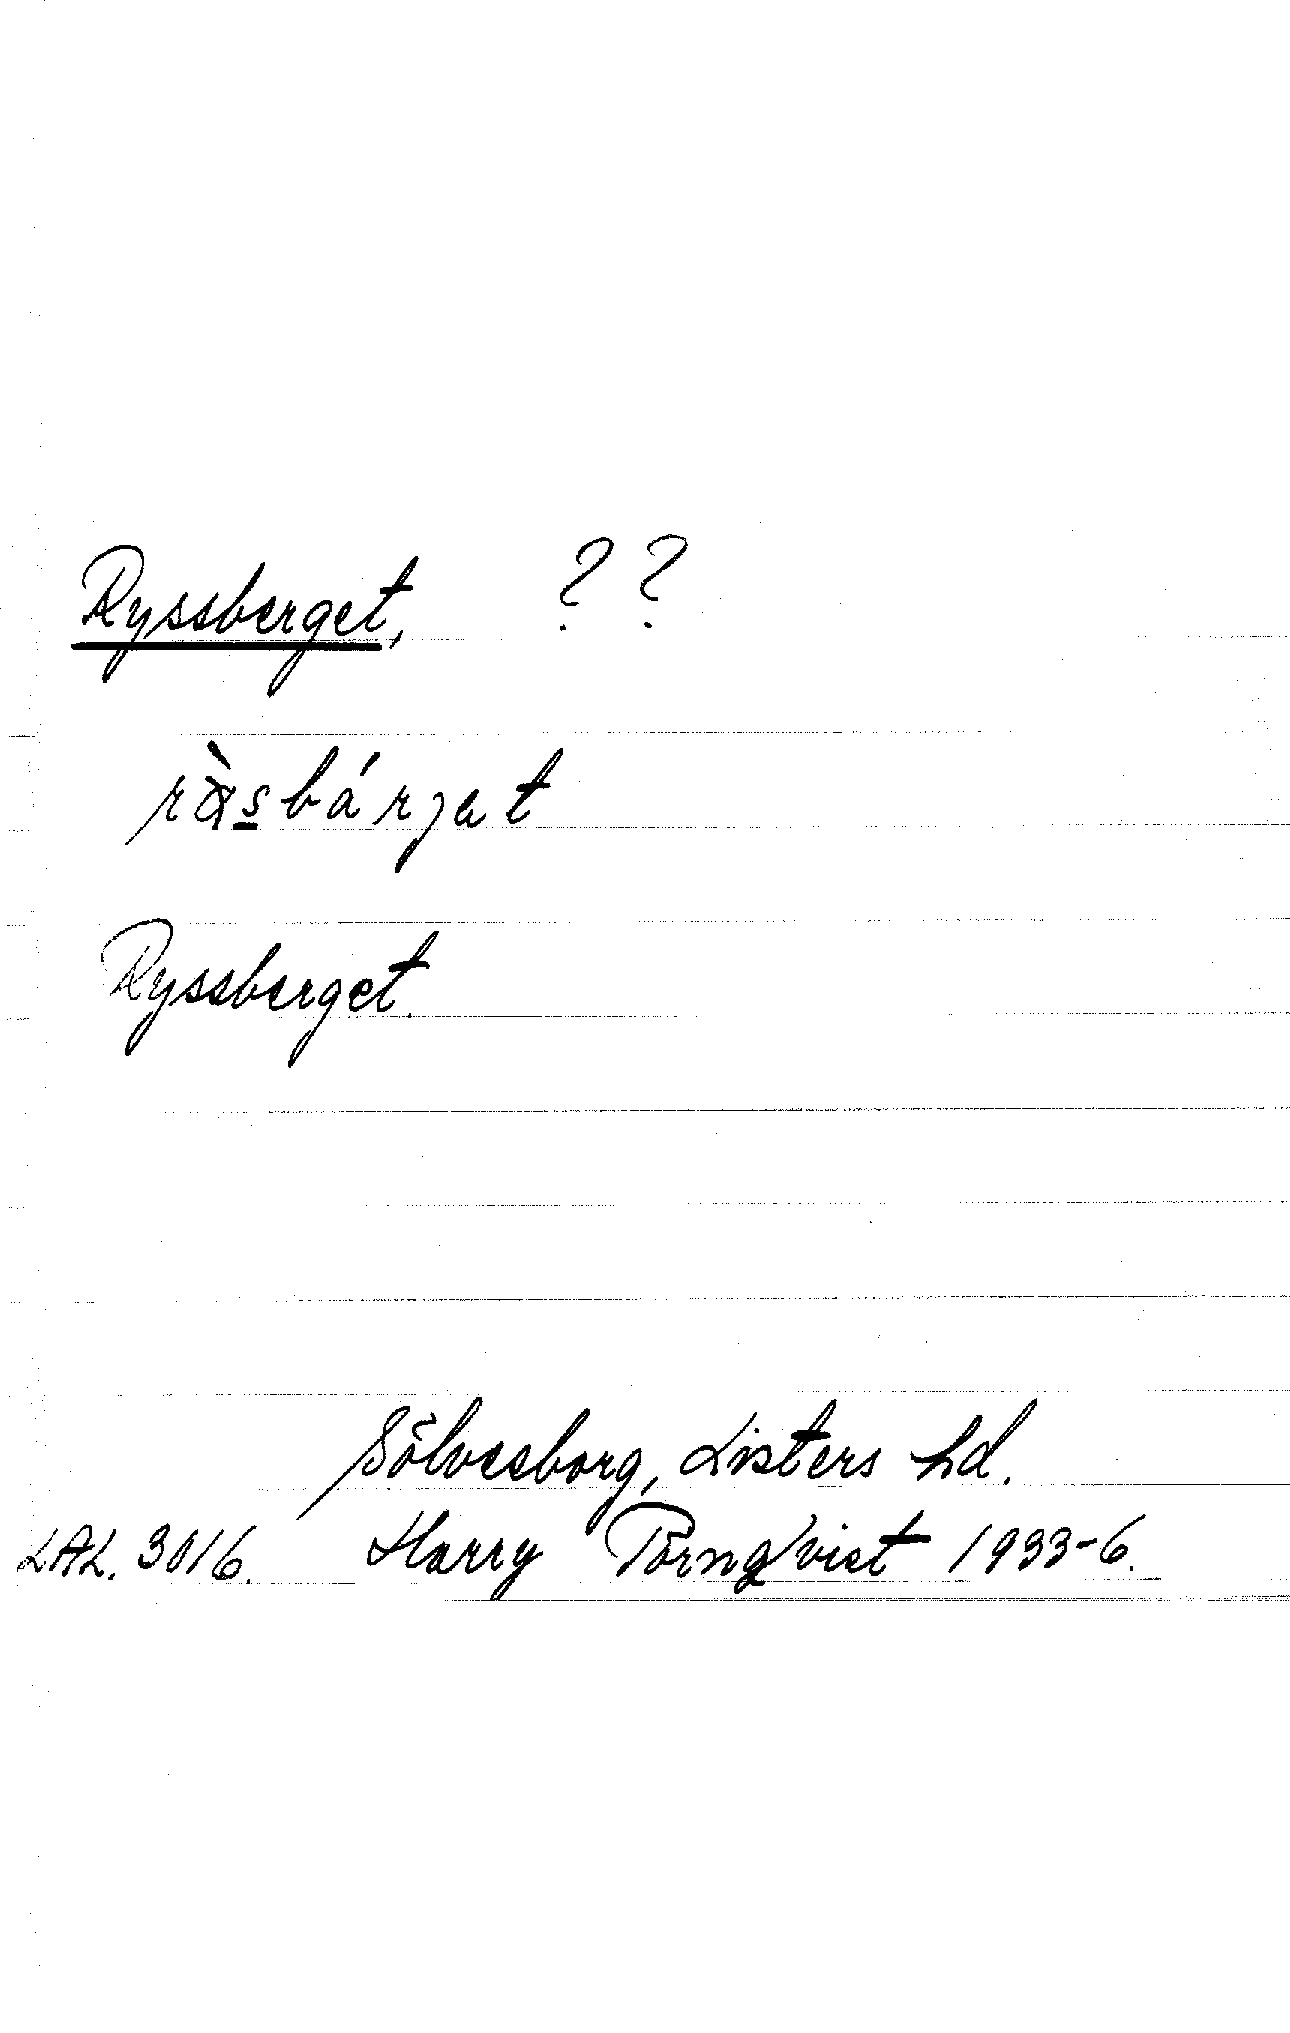 Ryssberget, ??
rɑ̀sbárjat
Ryssberget.
Sölvesborg, Listers hd.
LAL. 3016. Harry Törnqvist 1933-6.